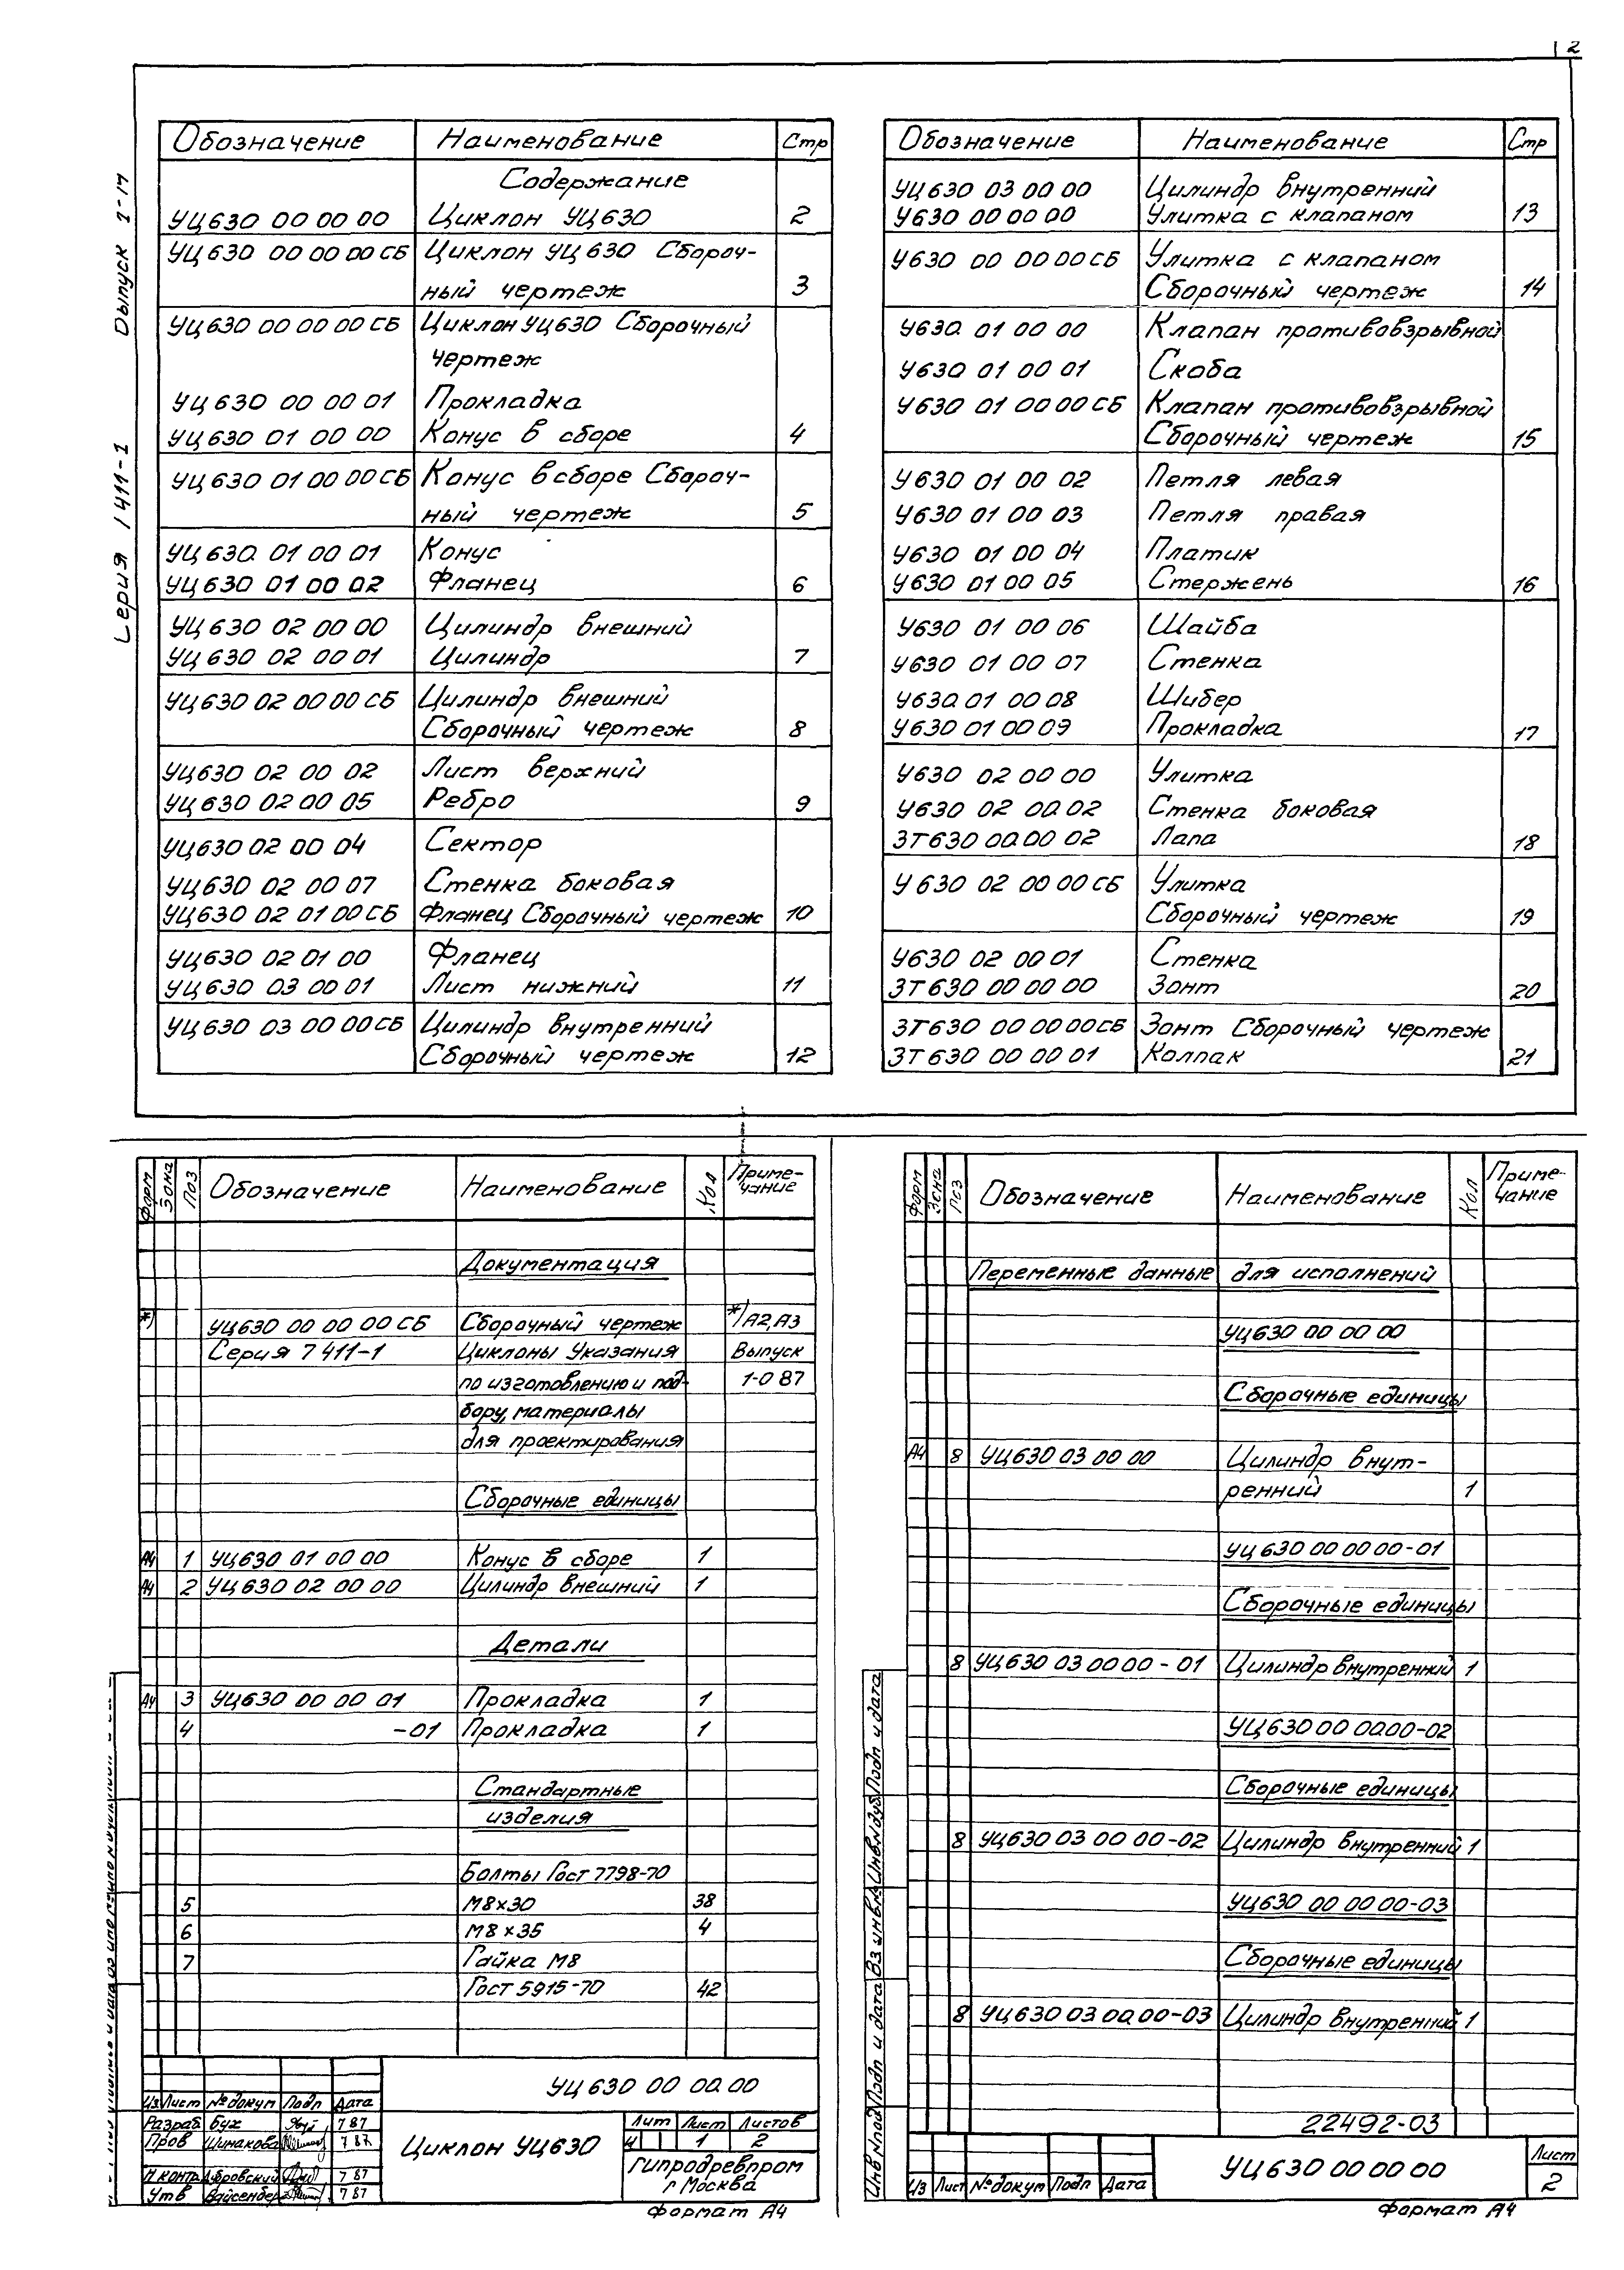 2
Серия 7411-1 Выпуск 1-17
Обозначение Наименование Стр
Содержание
УЦ630 00 00 00 Циклон УЦ630 2
УЦ630 00 00 00 СБ Циклон УЦ 630 Сбороч-
ный чертеж 3
УЦ630 00 00 00 СБ Циклон УЦ630 Сборочный
чертеж
УЦ630 00 00 01 Прокладка
УЦ630 01 00 00 Конус в сборе 4
УЦ630 01 00 00 СБ Конус в сборе Сбороч-
ный чертеж 5
УЦ630 01 00 01 Конус
УЦ630 01 00 02 Фланец 6
УЦ630 02 00 00 Цилиндр внешний
УЦ630 02 00 01 Цилиндр 7
УЦ630 02 00 00 СБ Цилиндр внешний
Сборочный чертеж 8
УЦ630 02 00 02 Лист верхний
УЦ630 02 00 05 Ребро 9
УЦ630 02 00 04 Сектор
УЦ630 02 00 07 Стенка боковая
УЦ630 02 01 00 СБ Фланец Сборочный чертеж 10
УЦ630 02 01 00 Фланец
УЦ630 03 00 01 Лист нижний 11
УЦ630 03 00 00 СБ Цилиндр внутренний
Сборочный чертеж 12
Обозначение Наименование Стр
УЦ630 03 00 00 Цилиндр внутренний
У630 00 00 00 Улитка с клапаном 13
У630 00 00 00 СБ Улитка с клапаном
Сборочный чертеж 14
У630 01 00 00 Клапан противовзрывной
У630 01 00 01 Скоба
У630 01 00 00 СБ Клапан противовзрывной
Сборочный чертеж 15
У630 01 00 02 Петля левая
У630 01 00 03 Петля правая
У630 01 00 04 Платик
У630 01 00 05 Стержень 16
У630 01 00 06 Шайба
У630 01 00 07 Стенка
У630 01 00 08 Шибер
У630 01 00 09 Прокладка 17
У630 02 00 00 Улитка
У630 02 00 02 Стенка боковая
ЗТ630 00 00 02 Лапа 18
У630 02 00 00 СБ Улитка
Сборочный чертеж 19
У630 02 00 01 Стенка
ЗТ630 00 00 00 Зонт 20
ЗТ630 00 00 00 СБ Зонт Сборочный чертеж
ЗТ630 00 00 01 Колпак 21
Форм Зона Поз Обозначение Наименование Кол Приме-
чание
Документация
*) УЦ630 00 00 00 СБ Сборочный чертеж *)А2,А3
Серия 7 411-1 Циклоны Указания Выпуск
по изготовлению и под- 1-0 87
бору, материалы
для проектирования
Сборочные единицы
А4 1 УЦ630 01 00 00 Конус в сборе 1
А4 2 УЦ630 02 00 00 Цилиндр внешний 1
Детали
А4 3 УЦ630 00 00 01 Прокладка 1
4 -01 Прокладка 1
Стандартные
изделия
Болты Гост 7798-70
5 М8×30 38
6 М8×35 4
7 Гайка М8
Гост 5915-70 42
УЦ630 00 00 00
Из Лист № докум Подп Дата
Разраб Бух 7 87
Пров Шинакова 7 87
Н контр Дубровский 7 87
Утв Вайсенбер 7 87
Циклон УЦ630
Лит Лист Листов
И 1 2
Гипродревпром
г Москва
Формат А4
Форм Зона Поз Обозначение Наименование Кол Приме-
чание
Переменные данные для исполнений
УЦ630 00 00 00
Сборочные единицы
А4 8 УЦ630 03 00 00 Цилиндр внут-
ренний 1
УЦ630 00 00 00-01
Сборочные единицы
8 УЦ630 03 00 00-01 Цилиндр внутренний 1
УЦ630 00 00 00-02
Сборочные единицы
8 УЦ630 03 00 00-02 Цилиндр внутренний 1
УЦ630 00 00 00-03
Сборочные единицы
8 УЦ630 03 00 00-03 Цилиндр внутренний 1
22492-03
Инв № под Подп и дата Вз инв № Инв № дуб Подп и дата
Из Лист № докум Подп Дата
УЦ630 00 00 00
Лист
2
Формат А4